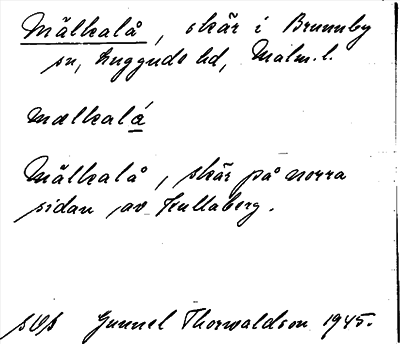 Mälkalå, skär i Brunnby
sn, Luggude hd, Malm. l.
mælkalá
Mälkalå, skär på norra
sidan av Kullaberg.
Gunnel Thorwaldson 1945.